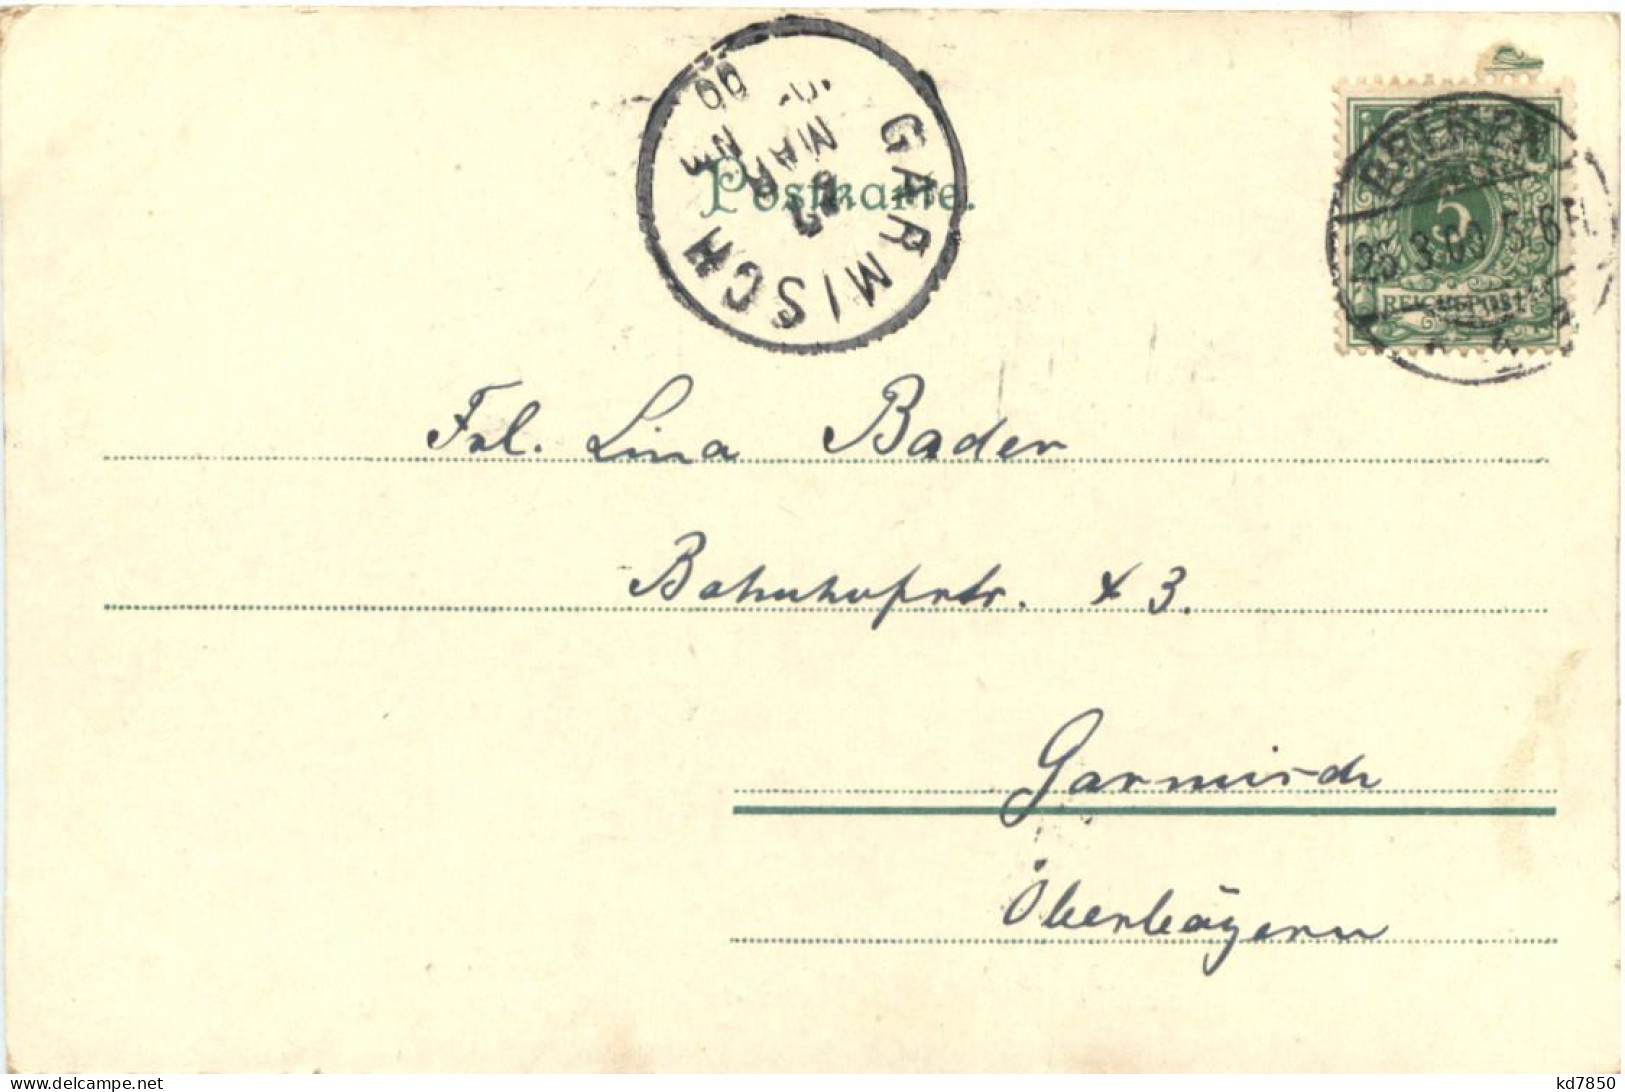 GARMISCH
MAR
NM
00
BREMEN
5
3.00 5-6 N.
REICHSPOST
Postkarte.
Frl. Lina Bader
Bahnhofstr. 43.
Garmisch
Oberbayern
www.delcampe.net
kd7850